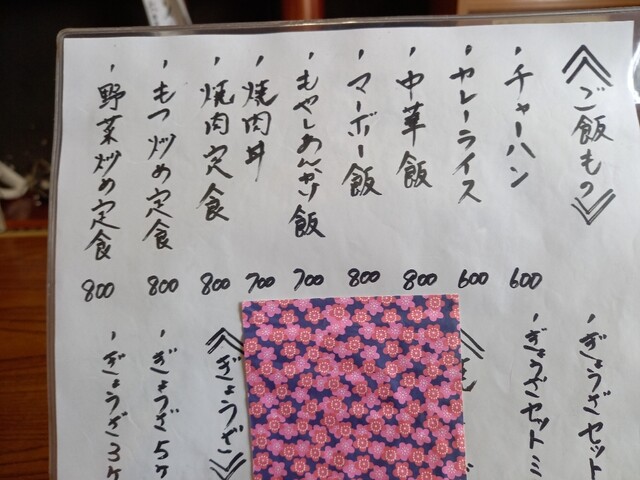 《ご飯もの》
・チャーハン 600
・カレーライス 600
・中華飯 800
・マーボー飯 800
・もやしあんかけ飯 700
・焼肉丼 700
・焼肉定食 800
・もつ炒め定食 800
・野菜炒め定食 800
・ぎょうざセット
・ぎょうざセットミ
《ぎょうざ》
・ぎょうざ5ケ
・ぎょうざ3ケ